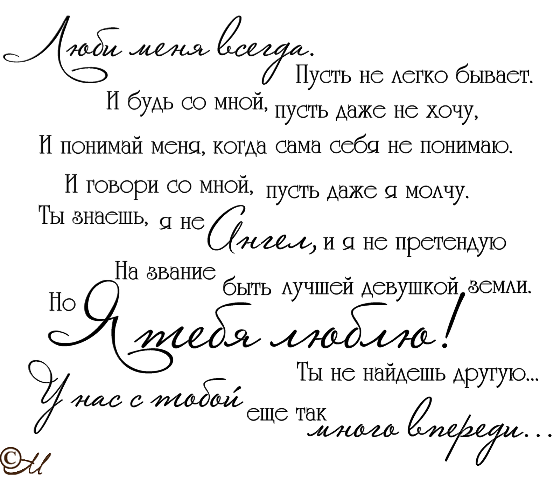 Люби меня всегда.
Пусть не легко бывает.
И будь со мной, пусть даже не хочу,
И понимай меня, когда сама себя не понимаю.
И говори со мной, пусть даже я молчу.
Ты знаешь, я не Ангел, и я не претендую
На звание быть лучшей девушкой земли.
Но Я тебя люблю!
Ты не найдешь другую...
У нас с тобой еще так много впереди...
©М